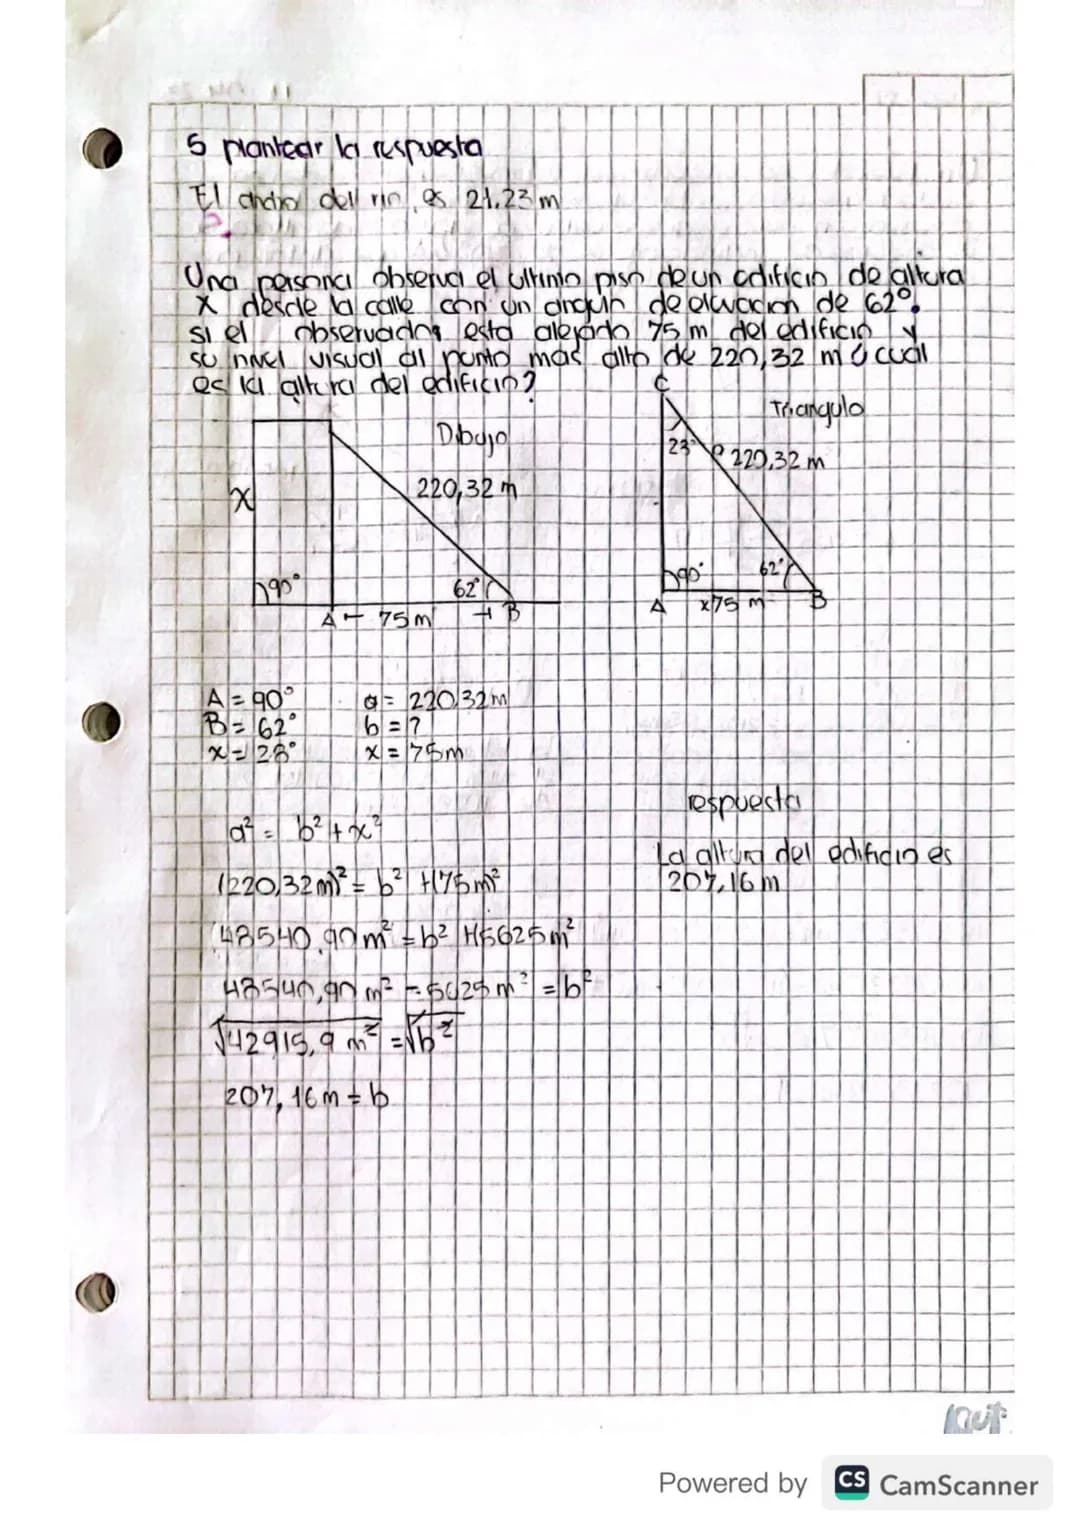 5 plantear la respuesta
El ancho dell rio, es 21.23 m
2.
Una persona observa el ultimo piso de un edificio de altura
x desde la calle con un angulo de elevacion de 62°.
si el observador esta alejado 75 m del edificio y
su nivel visual al punto mas alto de 220,32 m ¿ cual
es la altura del edificio?
C
Dibujo
Triangulo
23°
220,32 m
220,32 m
x
90°
62°
90°
62°
A 75 m B
A x75 m B
A = 90° a = 220,32 m
B = 62° b = ?
x = 28° x = 75 m
respuesta
a² = b² + x²
La altura del edificio es
207,16 m
(220,32 m)² = b² + (75 m)²
48540,90 m² = b² + 5625 m²
48540,90 m² - 5625 m² = b²
√42915,9 m² = √b²
207,16 m = b
Powered by CS CamScanner